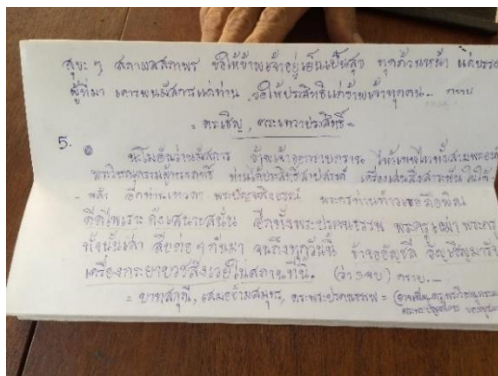 สุขะ ๆ สถาผลสถาพร ขอให้ข้าพเจ้าอยู่เย็นเป็นสุข ทุกถ้วนหน้า แด่บรรดา
ผู้ที่มา เคารพนมัสการแด่ท่าน ขอให้ประสิทธิแด่ข้าพเจ้าทุกคน.. กราบ
= ตระเชิญ, ตระเทวาประสิทธิ์ =
5.
นะโมอันว่านมัสการ ข้าพเจ้าขอกรายกราบ ไหว้เทพไททั้งสามพระองค์
พระวิษณุกรรมผู้ทรงฤทธิ์ ท่านได้ประสิทธิ์สาปสรรค์ เครื่องเล่นสิ่งสารพันไว้ใน
- หล้า อีกท่านเทวดา พระปัญจสิงขรณ์ พระกรท่านถือพิณ
ดีดไพเราะดังเสนาะสนั่น อีกทั้งพระประคนธรรพ พระครูเฒ่า พระครู
ทั้งนั้นเล่า สืบต่อ ๆ กันมา จนถึงทุกวันนี้ ข้าขออัญชลี อัญเชิญมารับ
เครื่องกระยาบวชสังเวยในสถานที่นี้. (ว่า ๓ จบ) กราบ...
= บาทสกุณี, เสมอข้ามสมุทร, ตระพระประคนธรรพ =